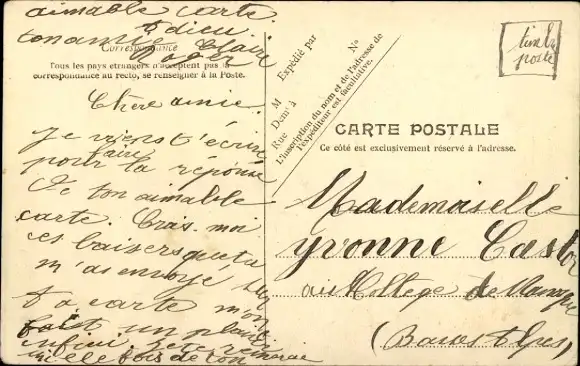 aimable carte.
Adieu
ton amie Claire
Correspondance
Tous les pays étrangers n'acceptent pas la
correspondance au recto, se renseigner à la Poste.
Chère amie.
Je viens t'écrire
faire
pour la réponse
De ton aimable
carte. Crois moi
ces baisers que tu
m'as envoyé sur
ta carte mon
fait un plaisir
infini. Je te remercie
mille fois de ton
Expédié par
N°
M
Demt à
Rue
L'inscription du nom et de l'adresse de
l'expéditeur est facultative.
timbre
poste
CARTE POSTALE
Ce côté est exclusivement réservé à l'adresse.
Mademoiselle
Yvonne Castor
au Collège de Manosque
(Basses Alpes)